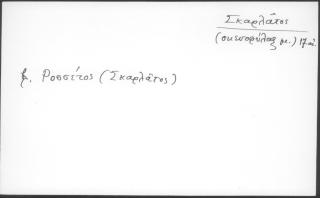 Σκαρλᾶτος
(σκευοφύλαξ μ.) 17 αἰ.
β. Ροσσέτος (Σκαρλᾶτος)